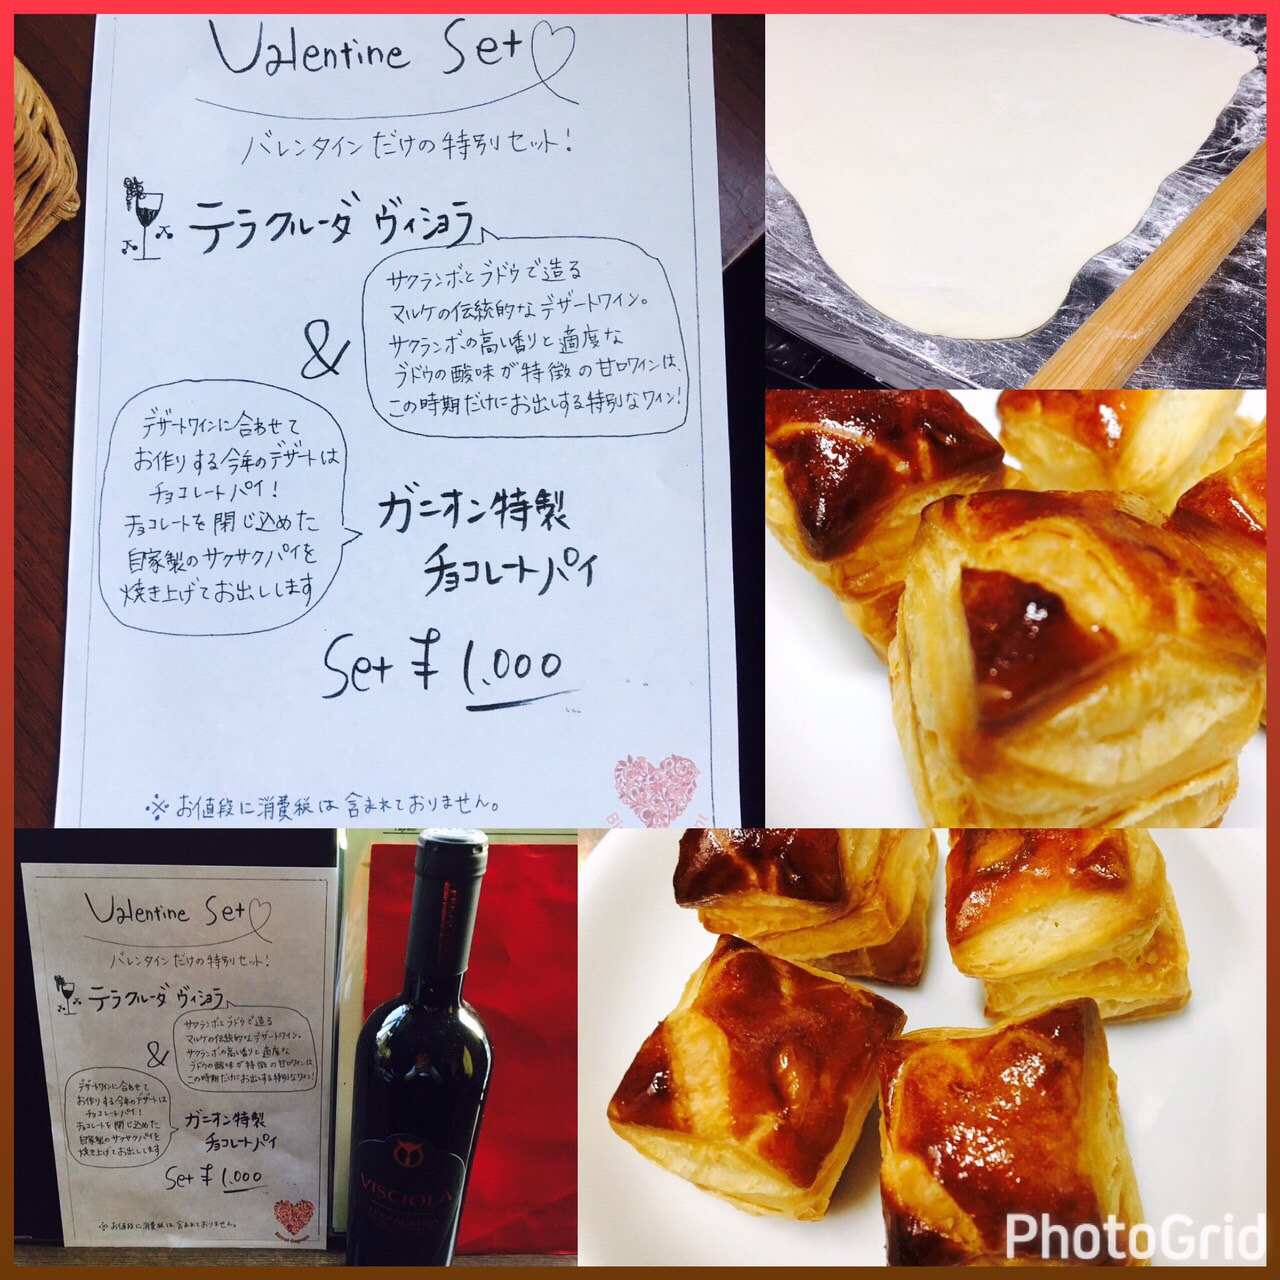 Valentine Set
バレンタインだけの特別セット!
テラクルーダ ヴィショラ
サクランボとブドウで造る
マルケの伝統的なデザートワイン。
サクランボの高い香りと適度な
ブドウの酸味が特徴の甘口ワインは、
この時期だけにお出しする特別なワイン!
&
デザートワインに合わせて
お作りする今年のデザートは
チョコレートパイ!
チョコレートを閉じ込めた
自家製のサクサクパイを
焼き上げてお出しします
ガニオン特製
チョコレートパイ
Set ¥1.000
※お値段に消費税は含まれておりません。
Valentine Set
バレンタインだけの特別セット!
テラクルーダ ヴィショラ
サクランボとブドウで造る
マルケの伝統的なデザートワイン。
サクランボの高い香りと適度な
ブドウの酸味が特徴の甘口ワインは、
この時期だけにお出しする特別なワイン!
&
デザートワインに合わせて
お作りする今年のデザートは
チョコレートパイ!
チョコレートを閉じ込めた
自家製のサクサクパイを
焼き上げてお出しします
ガニオン特製
チョコレートパイ
Set ¥1.000
※お値段に消費税は含まれておりません。
VISCIOLA
PhotoGrid